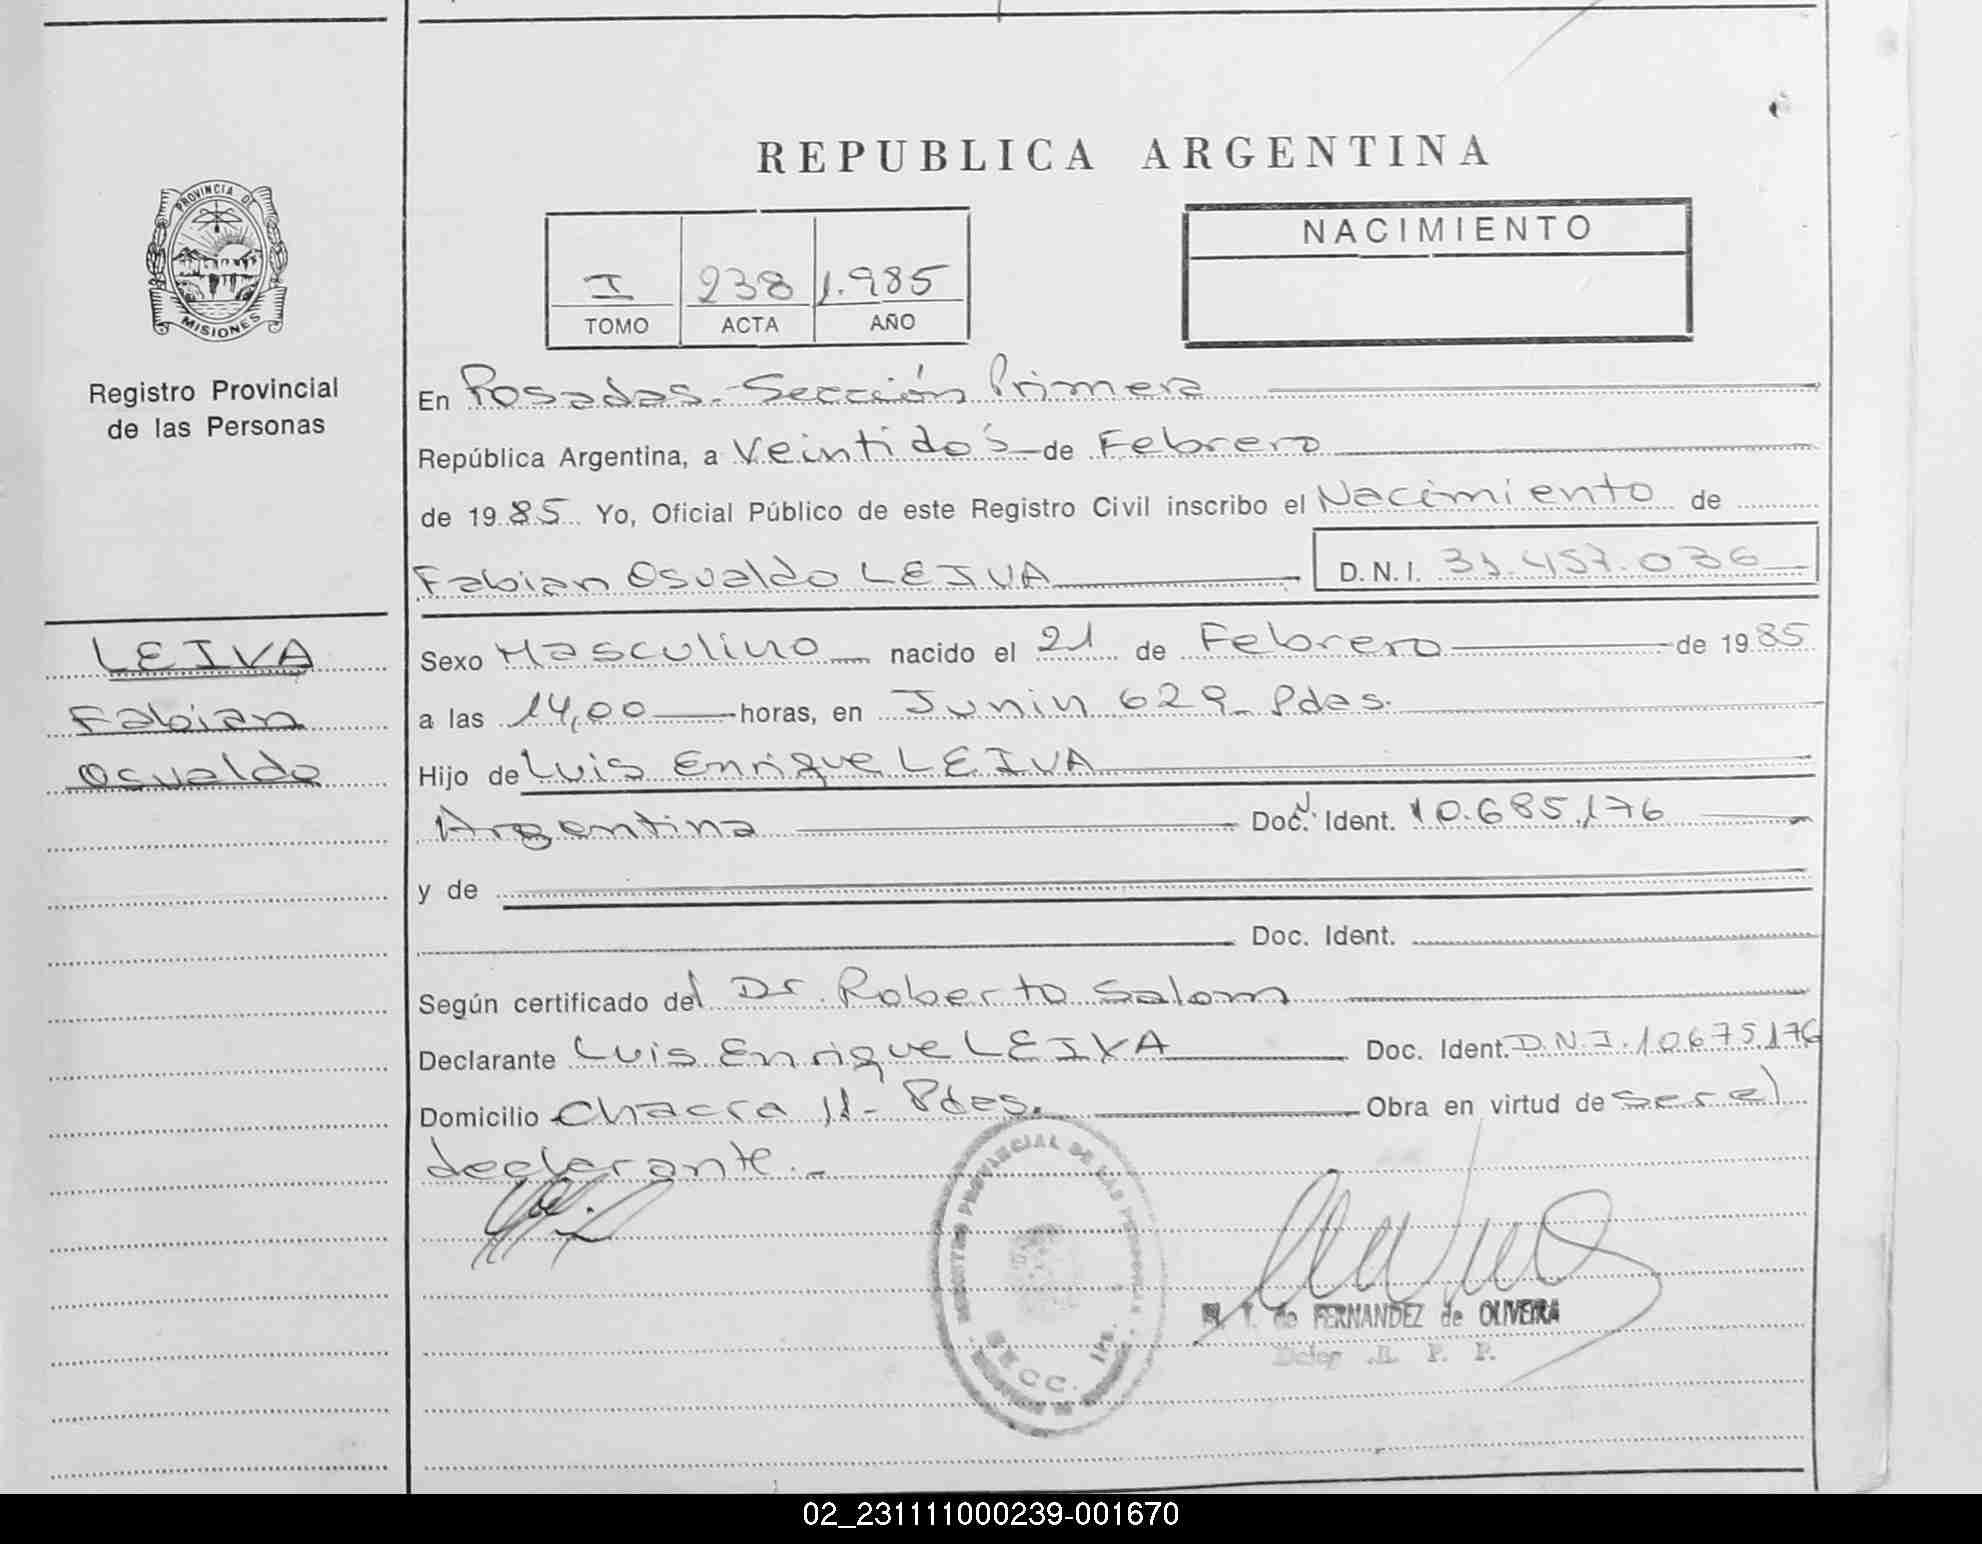 REPUBLICA ARGENTINA
PROVINCIA DE
MISIONES
Registro Provincial
de las Personas
I 238 1.985
TOMO ACTA AÑO
NACIMIENTO
En Posadas.-Sección Primera
República Argentina, a Veintidós de Febrero
de 1985 Yo, Oficial Público de este Registro Civil inscribo el Nacimiento de
Fabian Osvaldo LEIVA D.N.I. 31.457.036
LEIVA
Fabian
Osvaldo
Sexo Masculino nacido el 21 de Febrero de 1985
a las 14,00 horas, en Junin 629 Pdas.
Hijo de Luis Enrique LEIVA
Argentina Doc. Ident. 10.685.176
y de
Doc. Ident.
Según certificado del Dr. Roberto Salom
Declarante Luis Enrique LEIVA Doc. Ident. D.N.I. 10675176
Domicilio Chacra 11- Pdas. Obra en virtud de ser el
declarante.-
REGISTRO PROVINCIAL DE LAS PERSONAS
de FERNANDEZ de OLIVEIRA